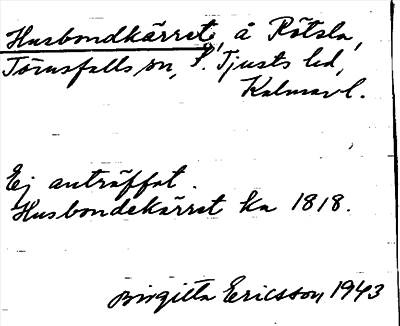 Husbondkärret, å Rötsla,
Törnsfalls sn, S. Tjusts hd,
Kalmar l.
Ej anträffat.
Husbondekärret ka 1818.
Birgitta Ericsson 1943